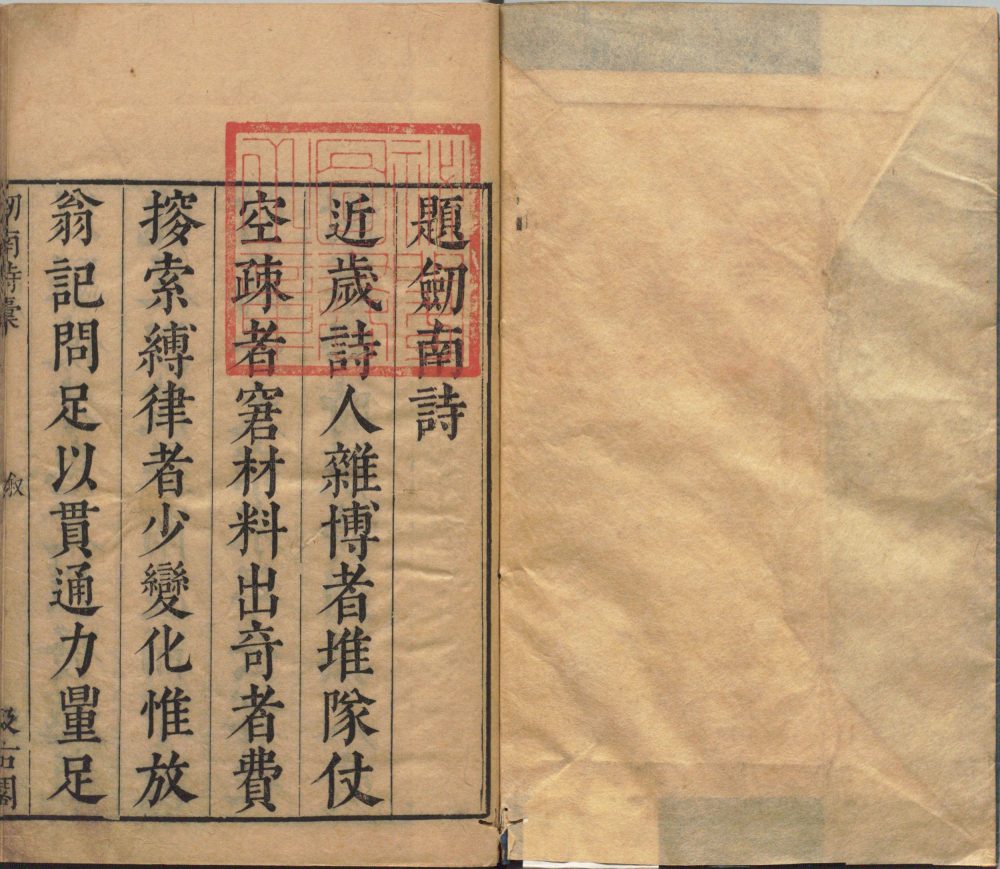 題劒南詩
近歲詩人雜博者堆隊仗
空疎者窘材料出奇者費
搜索縛律者少變化惟放
翁記問足以貫通力量足
劒南詩稾
敘
汲古閣